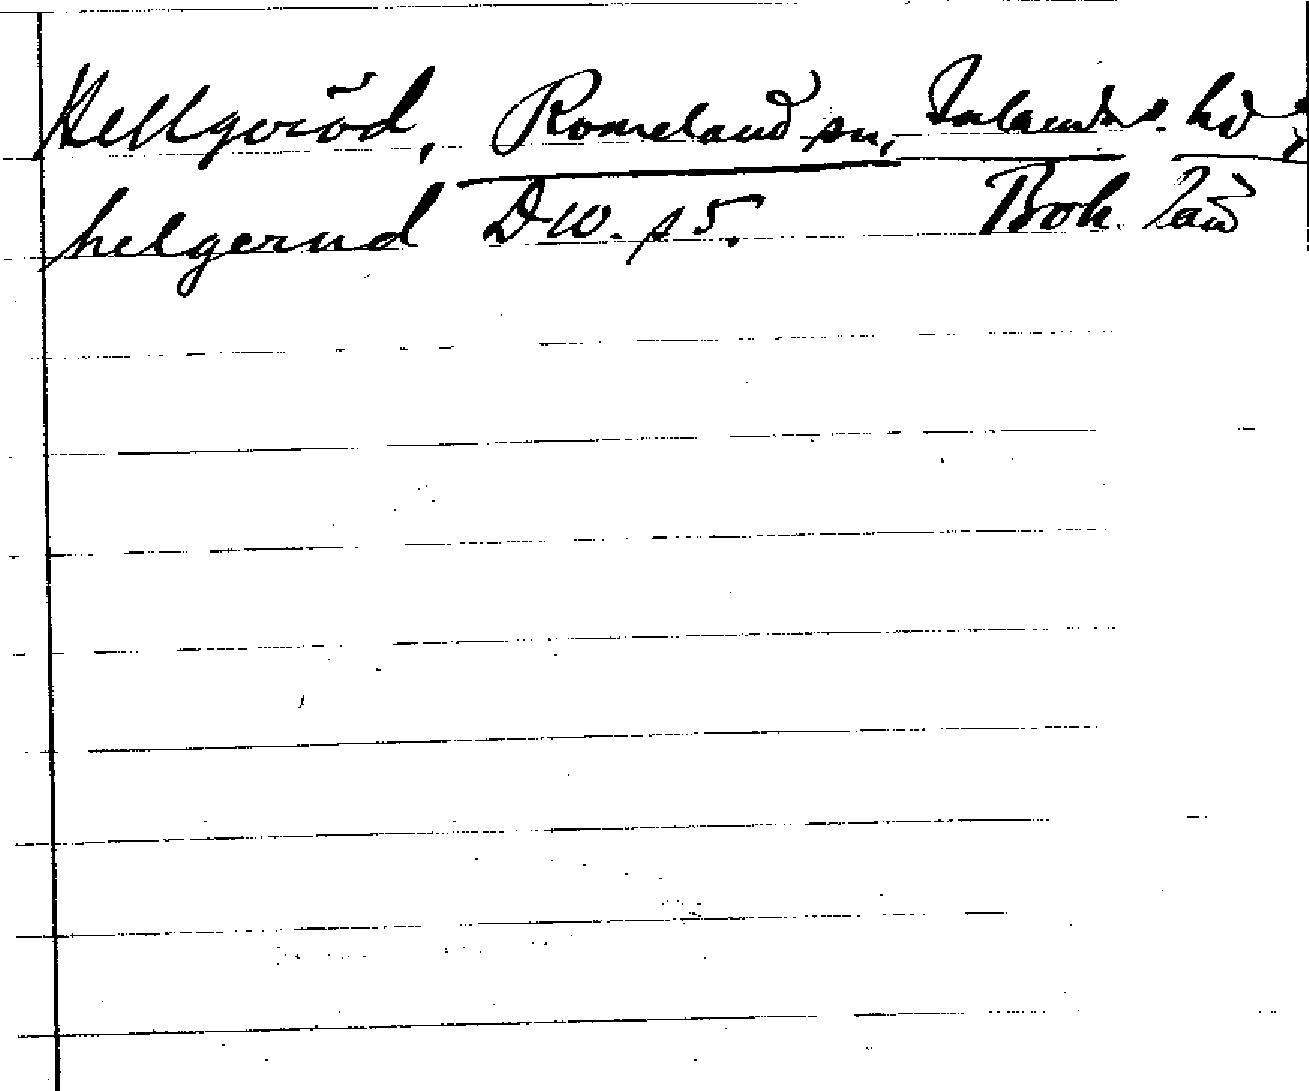 Hellgeröd, Romeland sn, Inlands s. hd
helgerud DW. s 5. Boh. län